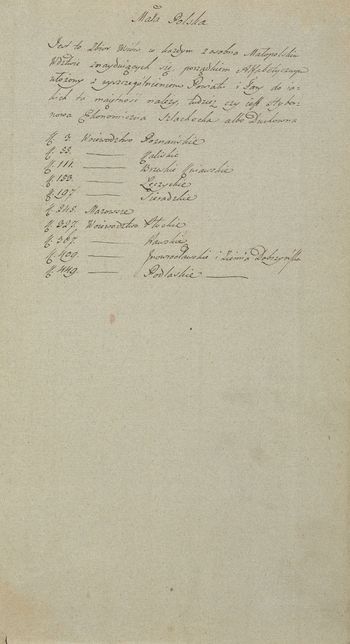 Mała Polska
Jest to Zbior Wsiów w każdym z osobna Małopolskim
Wdztwie znayduiących się, porządkiem Alfabetycznym
ułożony z wyszczególnieniem Powiatu i Pary do ia-
kich ta maiętność należy, tudzież czy iest Stężo-
nowa Ekonomiczna Szlachecka albo Duchowna
K. 3. Woiewodztwo Poznanskie
K. 55. ——— Kaliskie
K. 111. ——— Brzeskie Kuiawskie
K. 153. ——— Łęczyckie
K. 197. ——— Sieradzkie
K. 245. Mazowsze
K. 327. Woiewodztwo Płockie
K. 387. ——— Rawskie
K. 409. ——— Inowrocławskie i Ziemia Dobrzyńska
K. 449. ——— Podlaskie ———